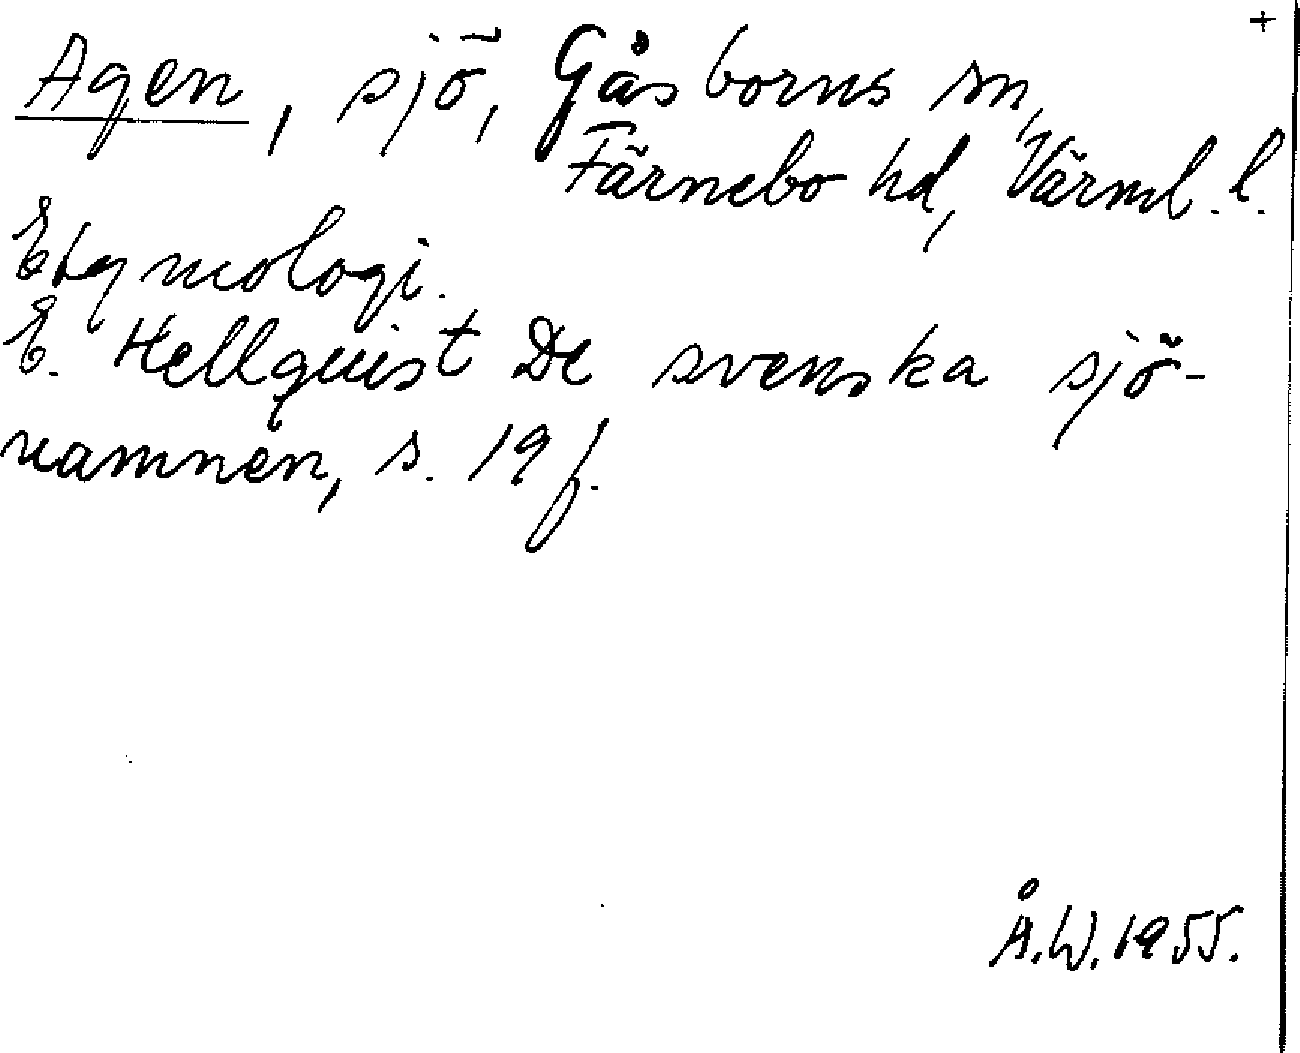 +
Agen, sjö, Gåsborns sn,
Färnebo hd, Värml. l.
Etymologi.
E. Hellquist De svenska sjö-
namnen, s. 19 f.
Å.W. 1955.